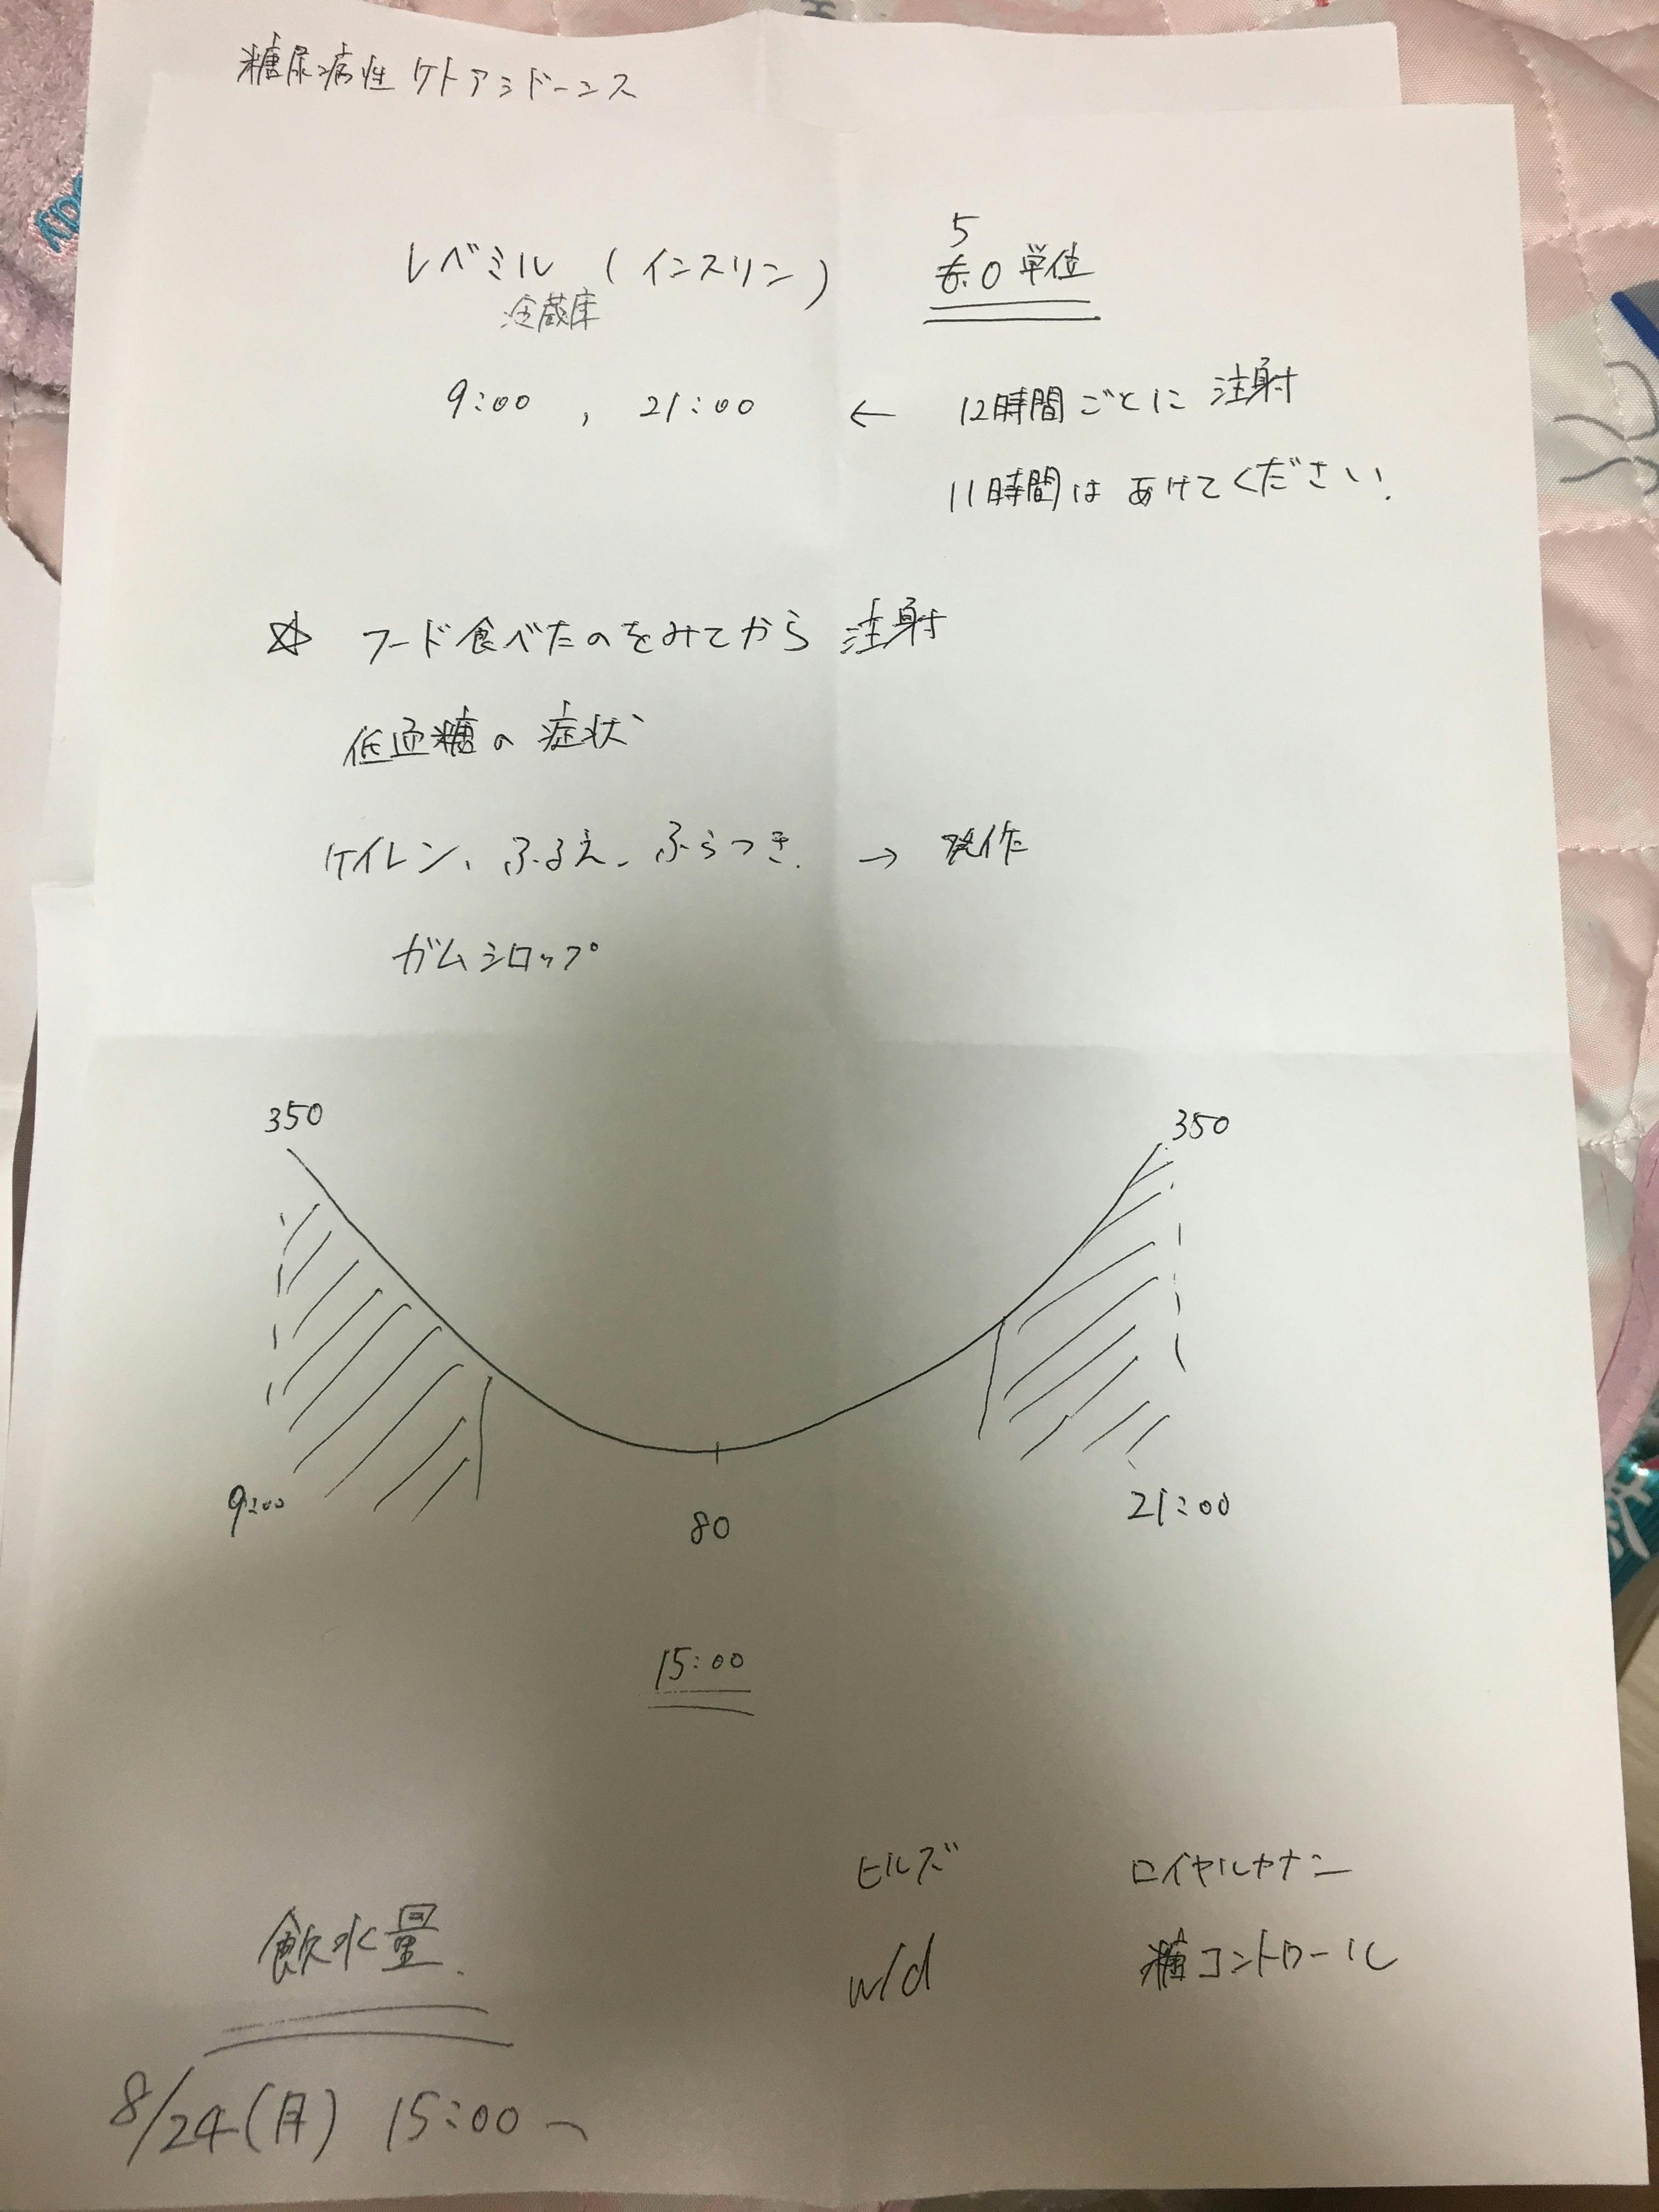 糖尿病性ケトアシドーシス
5
レベミル (インスリン) 6.0単位
冷蔵庫
9:00 , 21:00 ← 12時間ごとに 注射
11時間は あけてください.
☆ フード食べたのをみてから 注射
低血糖の 症状
ケイレン、ふるえ、ふらつき. → 発作
ガムシロップ
350 350
9:00 80 21:00
15:00
ヒルズ ロイヤルカナン
飲水量. w/d 糖コントロール
8/24(月) 15:00〜